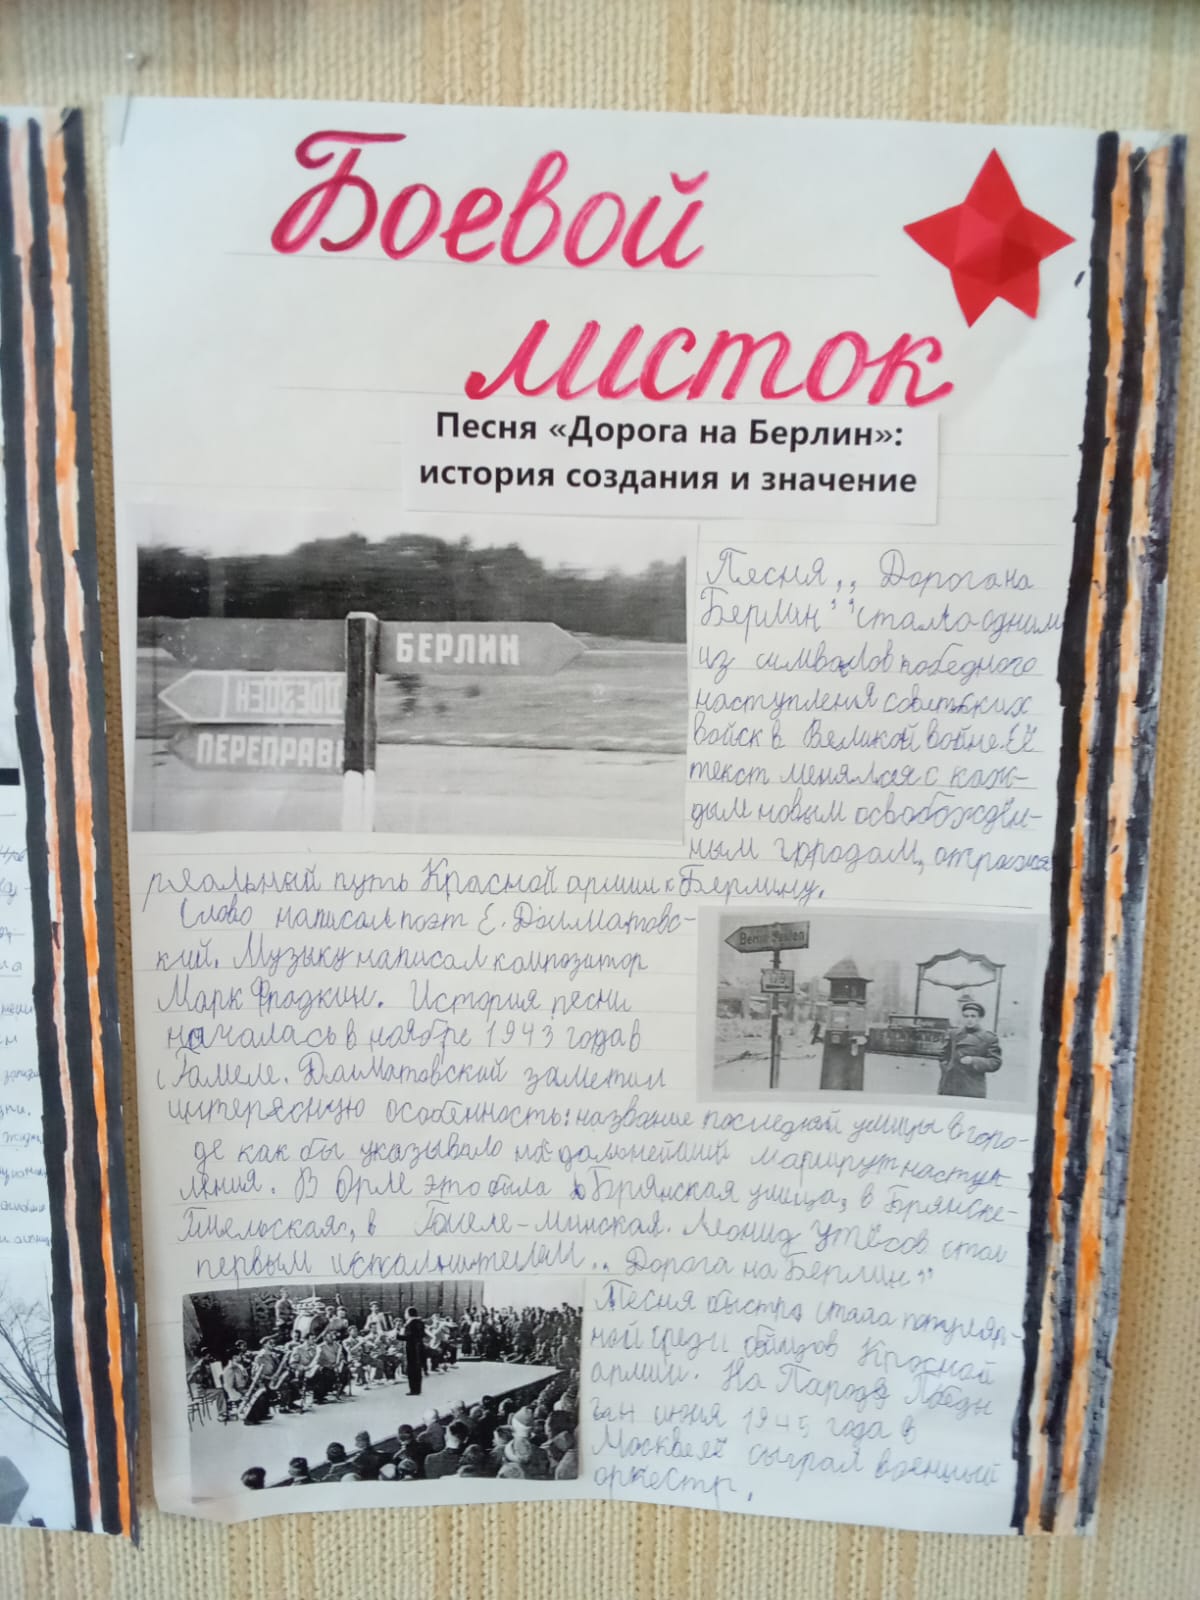 Боевой
листок
Песня «Дорога на Берлин»:
история создания и значение
БЕРЛИН
ПЕРЕПРАВ
Песня ,, Дорога на
Берлин" стала одним
из символов победного
наступления советских
войск в Великой войне. Её
текст менялся с каж-
дым новым освобождён-
ным городом, отражая
реальный путь Красной армии к Берлину.
Слово написал поэт Е. Долматовс-
кий. Музыку написал композитор
Марк Фрадкин. История песни
началась в ноябре 1943 года в
Гомеле. Долматовский заметил
интересную особенность: название последней улицы в горо-
де как бы указывало на дальнейший маршрут наступ-
ления. В Орле это была Брянская улица, в Брянске-
Гомельская, в Гомеле-Минская. Леонид Утёсов стал
первым исполнителем ,, Дорога на Берлин"
Песня быстро стала популяр-
ной среди бойцов Красной
армии. На Параде Победы
июня 1945 года в
Москве её сыграл военный
оркестр.